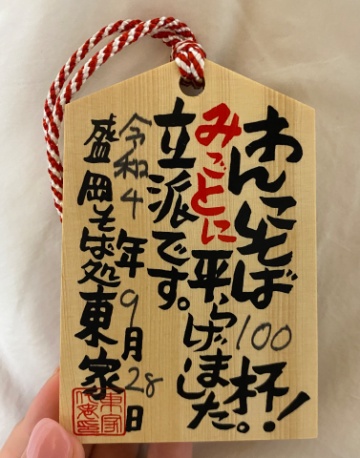 わんこそば100杯！
みごとに平らげました。
立派です。
令和4年9月28日
盛岡そば処東家